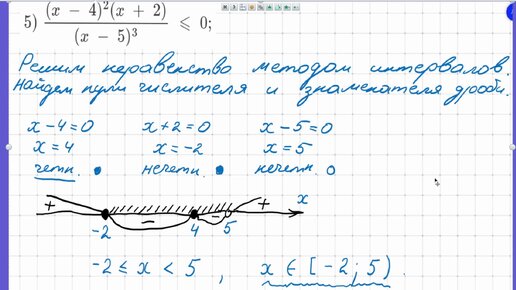 5) (x − 4)²(x + 2) / (x − 5)³ ⩽ 0;
Решим неравенство методом интервалов.
Найдем нули числителя и знаменателя дроби.
x − 4 = 0 x + 2 = 0 x − 5 = 0
x = 4 x = −2 x = 5
четн. нечетн. нечетн.
+ − − + x
−2 4 5
−2 ≤ x < 5 , x ∈ [−2; 5).